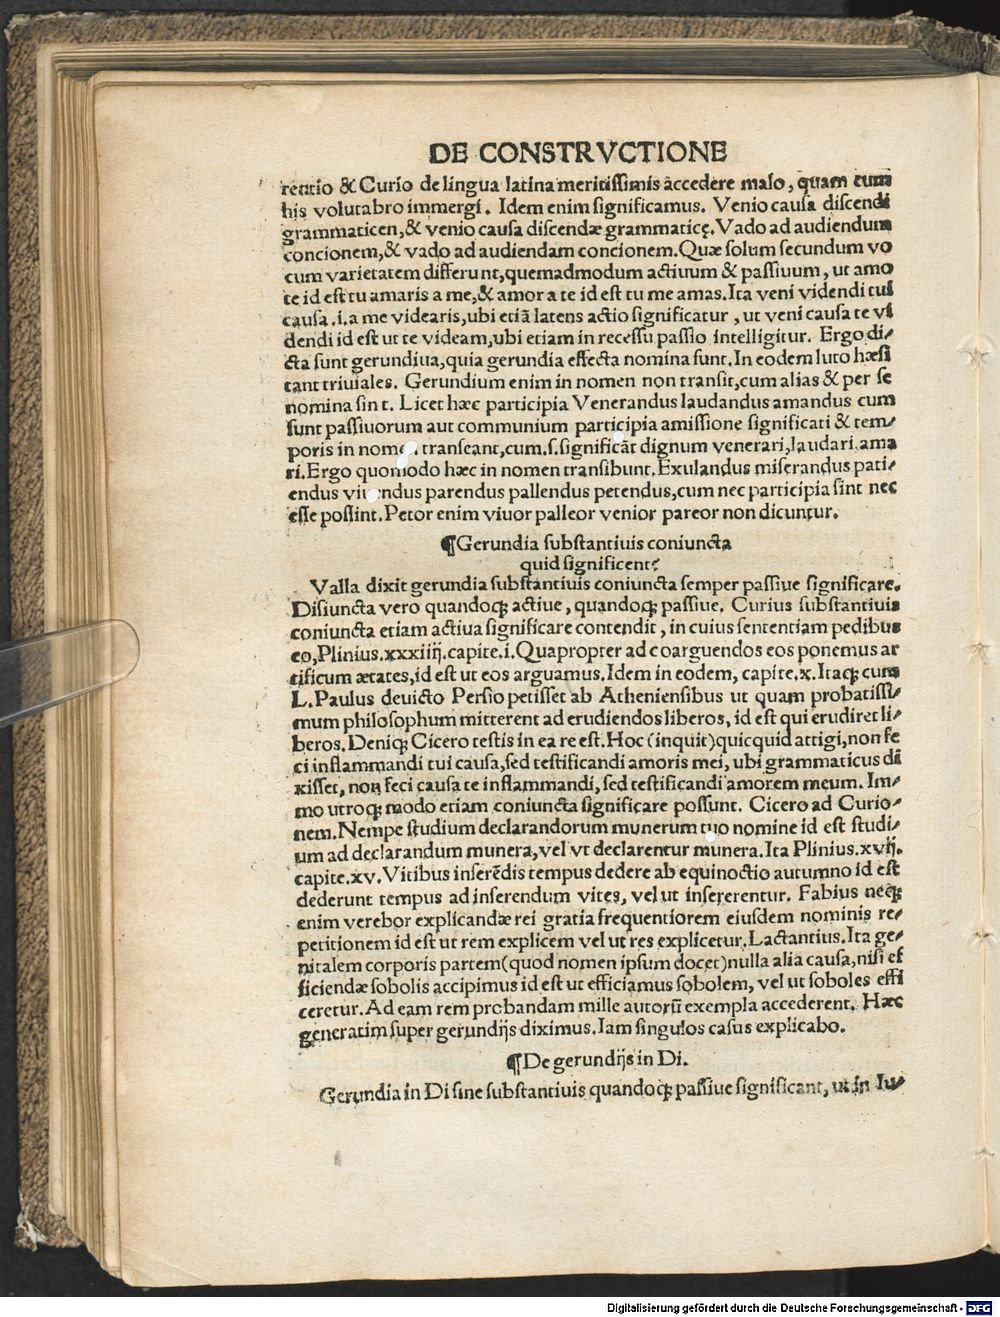 DE CONSTRVCTIONE
rentio & Curio de lingua latina meritissimis accedere malo, quam cum
his volutabro immergi. Idem enim significamus. Venio causa discendi
grammaticen, & venio causa discendæ grammaticę. Vado ad audiendum
concionem, & vado ad audiendam concionem. Quæ solum secundum vo
cum varietatem differunt, quemadmodum actiuum & passiuum, ut amo
te id est tu amaris a me, & amor a te id est tu me amas. Ita veni videndi tui
causa .i. a me videaris, ubi etiã latens actio significatur, ut veni causa te vi
dendi id est ut te videam, ubi etiam in recessu passio intelligitur. Ergo di⸗
cta sunt gerundiua, quia gerundia effecta nomina sunt. In eodem luto hæsi
tant triuiales. Gerundium enim in nomen non transit, cum alias & per se
nomina sint. Licet hæc participia Venerandus laudandus amandus cum
sunt passiuorum aut communium participia amissione significati & tem⸗
poris in nomen transeant, cum .s. significãt dignum venerari, laudari, ama
ri. Ergo quomodo hæc in nomen transibunt. Exulandus miserandus pati⸗
endus viuendus parendus pallendus petendus, cum nec participia sint nec
esse possint. Petor enim viuor palleor venior pareor non dicuntur.
¶Gerundia substantiuis coniuncta
quid significent?
Valla dixit gerundia substantiuis coniuncta semper passiue significare.
Disiuncta vero quandoqꝫ actiue, quandoqꝫ passiue. Curius substantiuis
coniuncta etiam actiua significare contendit, in cuius sententiam pedibus
eo, Plinius .xxxiiij. capite .i. Quapropter ad coarguendos eos ponemus ar
tificum ætates, id est ut eos arguamus. Idem in eodem, capite .x. Itaqꝫ cum
L. Paulus deuicto Persio petisset ab Atheniensibus ut quam probatissi⸗
mum philosophum mitterent ad erudiendos liberos, id est qui erudiret li⸗
beros. Deniqꝫ Cicero testis in ea re est. Hoc (inquit) quicquid attigi, non fe
ci inflammandi tui causa, sed testificandi amoris mei, ubi grammaticus di
xisset, non feci causa te inflammandi, sed testificandi amorem meum. Im⸗
mo utroqꝫ modo etiam coniuncta significare possunt. Cicero ad Curio⸗
nem. Nempe studium declarandorum munerum tuo nomine id est studi⸗
um ad declarandum munera, vel vt declarentur munera. Ita Plinius .xvij.
capite .xv. Vitibus inserẽdis tempus dedere ab equinoctio autumno id est
dederunt tempus ad inserendum vites, vel ut insererentur. Fabius neqꝫ
enim verebor explicandæ rei gratia frequentiorem eiusdem nominis re⸗
petitionem id est ut rem explicem vel ut res explicetur. Lactantius. Ita ge⸗
nitalem corporis partem (quod nomen ipsum docet) nulla alia causa, nisi ef
ficiendæ sobolis accipimus id est ut efficiamus sobolem, vel ut soboles effi
ceretur. Ad eam rem probandam mille autorũ exempla accederent. Hæc
generatim super gerundijs diximus. Iam singulos casus explicabo.
¶De gerundijs in Di.
Gerundia in Di sine substantiuis quandoqꝫ passiue significant, ut in Iu⸗
Digitalisierung gefördert durch die Deutsche Forschungsgemeinschaft - DFG